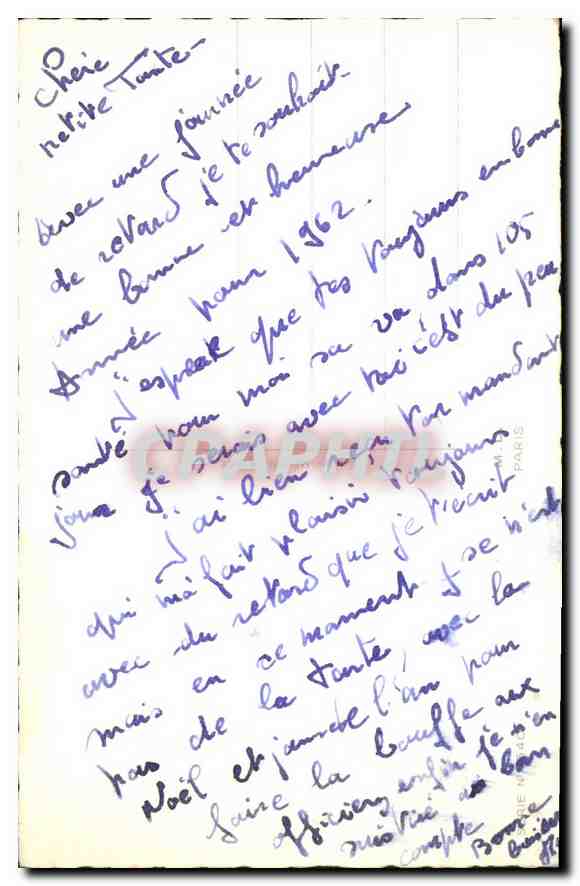 Chère
petite Tante -
avec une journée
de retard je te souhait-
une bonne et heureuse
Année pour 1962.
J'espère que tes toujours en bonne
santé pour moi sa va dans 105
jour je serais avec toi c'est du peu
J'ai bien reçu ton mandant
qui m'a fait plaisir toujours
avec du retard que je t'écrit
mais en ce moment se n'est
pas de la tarte, avec la
Noël et jour de l'an pour
faire la bouffe aux
officiers enfin je m'en
suis tiré a bon
compte
Bonne
CPAPHIL
M.D.
PARIS
SERIE N°